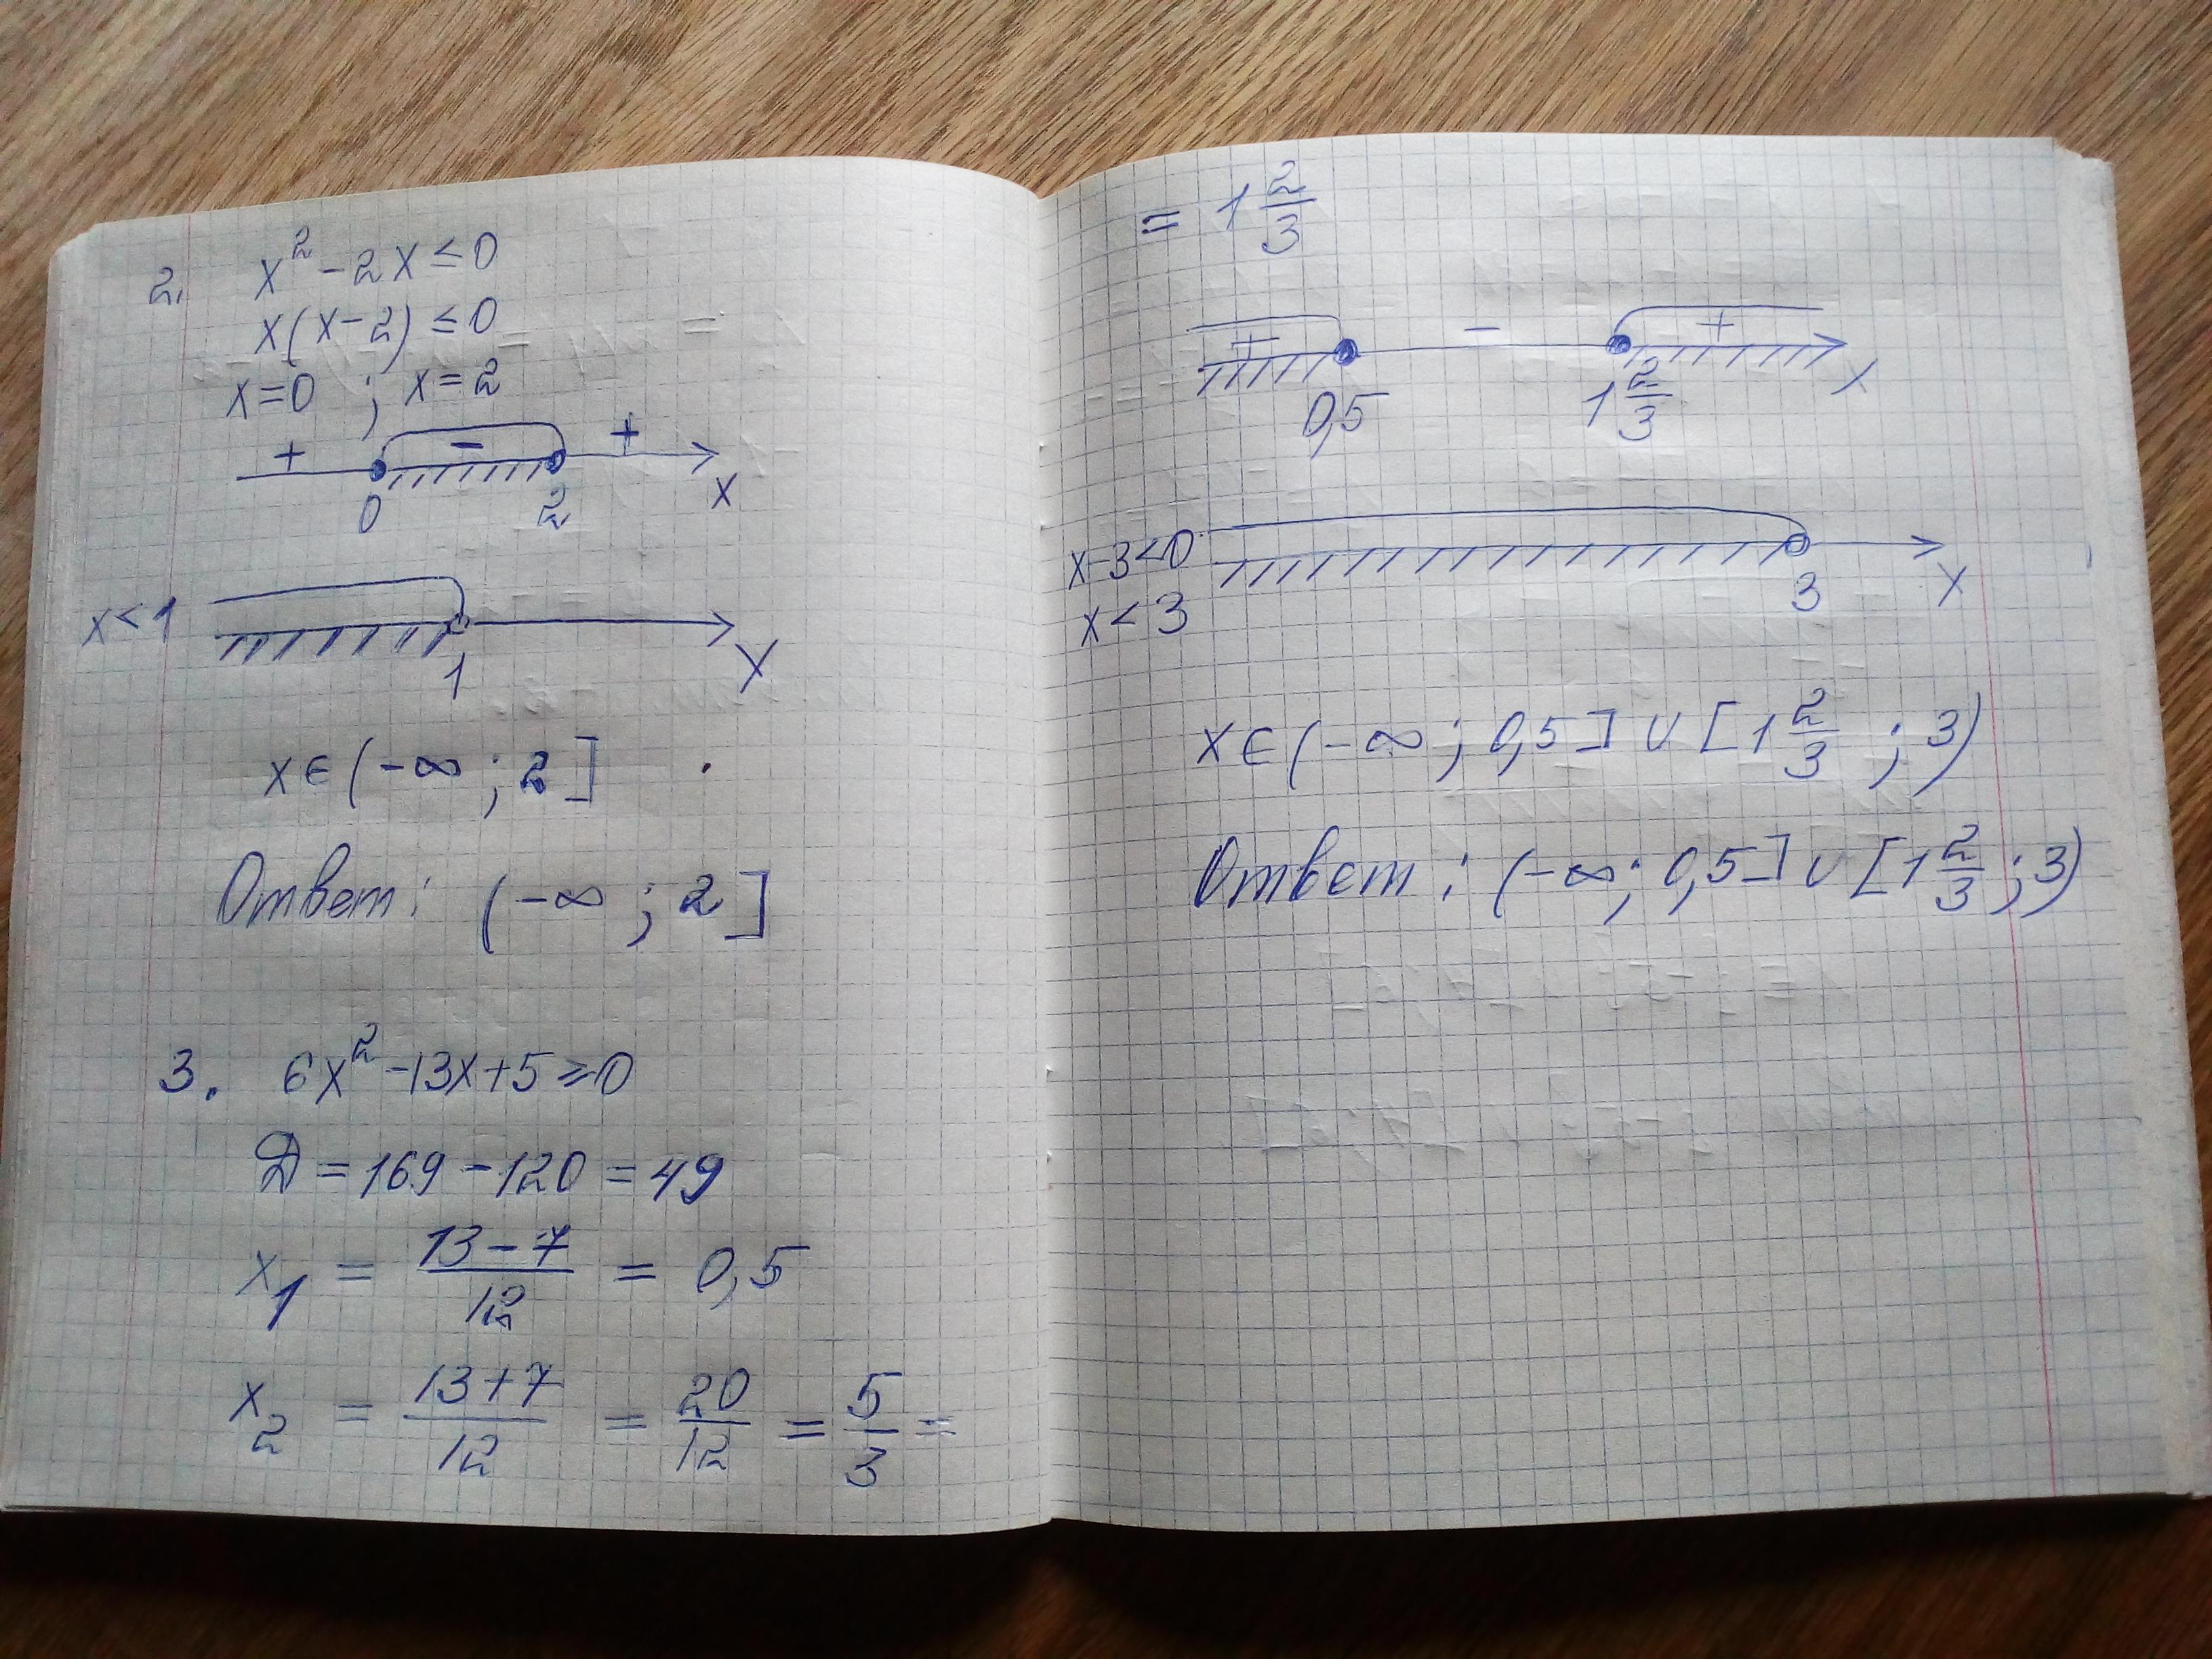 2. x² - 2x ≤ 0
x(x-2) ≤ 0
x=0 ; x=2
+ - +
0 2 x
x<1
1 x
x∈(-∞; 2]
Ответ: (-∞; 2]
3. 6x² - 13x + 5 ≥ 0
D = 169 - 120 = 49
x₁ = \frac{13-7}{12} = 0,5
x₂ = \frac{13+7}{12} = \frac{20}{12} = \frac{5}{3} =
= 1\frac{2}{3}
+ - +
0,5 1\frac{2}{3} x
x-3<0
x<3 3 x
x∈(-∞; 0,5] ∪ [1\frac{2}{3}; 3)
Ответ: (-∞; 0,5] ∪ [1\frac{2}{3}; 3)